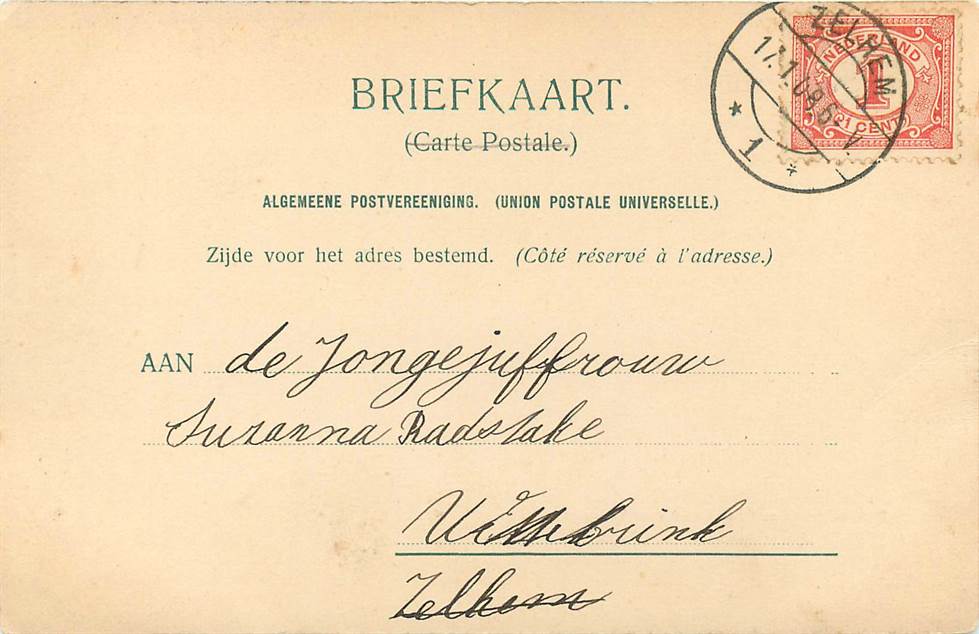 BRIEFKAART.
(Carte Postale.)
ALGEMEENE POSTVEREENIGING. (UNION POSTALE UNIVERSELLE.)
Zijde voor het adres bestemd. (Côté réservé à l'adresse.)
AAN de Jongejuffrouw
Suzanna Radstake
Wittebrink
Zelhem
ZELHEM
17.1.08.6
1
NEDERLAND
1
1 CENT